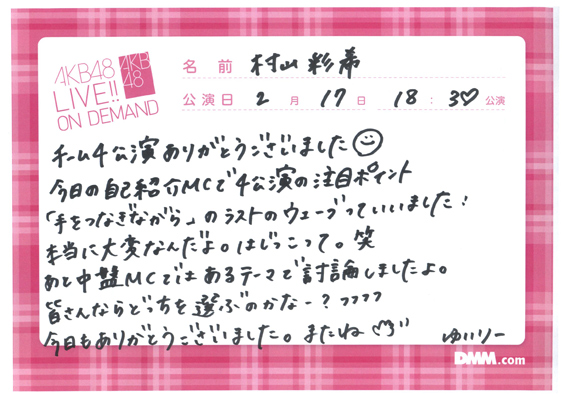 AKB48
LIVE!!
ON DEMAND
AKB
48
名前 村山彩希
公演日 2月17日 18:30公演
チーム4公演ありがとうございました
今日の自己紹介MCで4公演の注目ポイント
「手をつなぎながら」のラストのウェーブっていいました!
本当に大変なんだよ。はじっこって。笑
あと中盤MCではあるテーマで討論しましたよ。
皆さんならどっちを選ぶのかなー?フフフフ
今日もありがとうございました。またね
ゆいりー
DMM.com